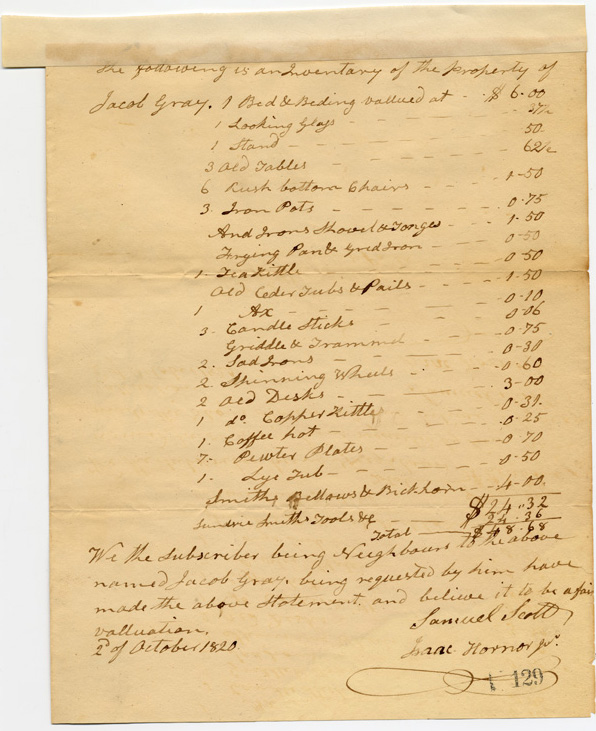 The following is an Inventory of the Property of
Jacob Gray. 1 Bed & Beding vallued at - - $ 6.00
1 Looking Glass - - - 37½
1 Stand - - - 50
3 Old Tables - - - 62½
6 Rush bottom Chairs - - - 1-50
3. Iron Pots - - - 0.75
And Irons Shovel & Tonges - - 1.50
Frying Pan & Grid Iron - - 0-50
1. Tea Kittle - - - 0.50
Old Ceder Tubs & Pails - - 1.50
1 Ax - - - 0-10
3. Candle Sticks - - - 0.06
Griddle & Trammel - - 0.75
2. Sad Irons - - - 0-30
2 Spinning Wheels - - 0.60
2 Old Desks - - - 3-00
1 do. Copper Kittle - - 0.31
1. Coffee Pot - - - 0.25
7. Pewter Plates - - - 0.70
1. Lye Tub - - - 0.50
Smiths Bellows & Bickhorn - 4-00.
Sundrie Smiths Tools &c $24..32
$24.36
Total $48.68
We the Subscriber being Neighbours to the above
named Jacob Gray. being requested by him have
made the above Statement. and believe it to be a fair
valluation.
2d of October 1820
Samuel Scott
Isaac Hornor Jr.
129